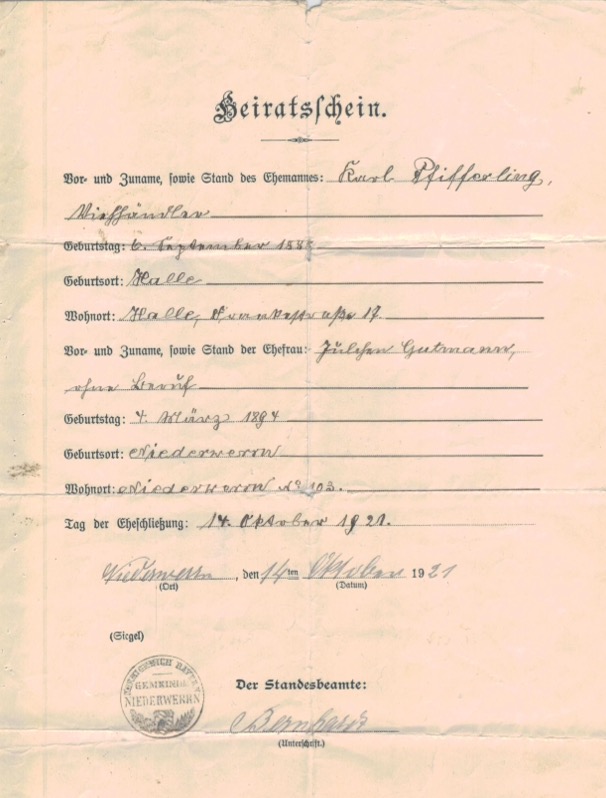 Heiratsschein.
Vor- und Zuname, sowie Stand des Ehemannes: Karl Pfifferling,
Viehhändler
Geburtstag: 6. September
Geburtsort: Halle
Wohnort: Halle, 17.
Vor- und Zuname, sowie Stand der Ehefrau: Julchen Gutmann,
ohne Beruf
Geburtstag: 4. März 1894
Geburtsort: Niederwerrn
Wohnort: Niederwerrn No 103.
Tag der Eheschließung: 14. Oktober 1921.
Niederwerrn, den 14ten Oktober 1921
(Ort) (Datum)
(Siegel)
KOENIGREICH BAYERN
GEMEINDE
NIEDERWERRN
Der Standesbeamte:
(Unterschrift.)